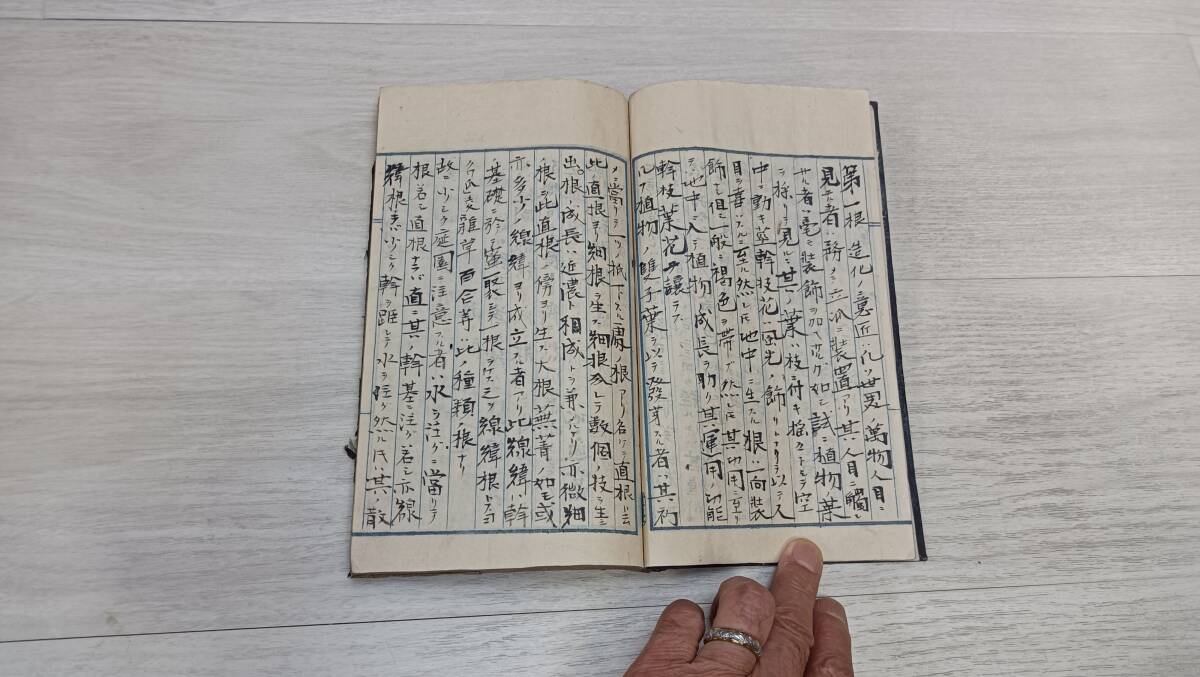 第一根 造化ノ意匠ハ凡ソ世界ノ萬物人目ニ
見ユル者ハ務メテ立派ニ装置アリ其人目ニ觸レ
サル者ハ毫モ装飾ヲ加ヘサルカ如シ試ニ植物ノ葉
ヲ採リテ見ルニ其ノ葉ハ枝ニ附キ搖 空
中ニ動キ莖幹枝花ハ ノ飾リトナリ以テ人
目ヲ喜ハスルニ至ル然レ𪜈地中ニ生スル根ハ一向装
飾モ但一般ニ褐色ヲ帯フ然レ𪜈其功用ニ至リ
テハ地中ニ入テ植物ノ成長ヲ助ケ其運用ノ功能
幹枝葉花ニ讓ラス
凡ソ植物ノ雙子葉ヲ以テ發芽スル者ハ其初
メニ當リテ一ツ抵下スル ノ根アリ名ケテ直根ト云
此ノ直根ヨリ細根ヲ生ス細根分レテ數個ノ枝ヲ生シ
出。根ノ成長ハ ト相成トヲ兼 亦微細
ノ根ニ此直根ノ傍ヨリ生ス大根蕪菁ノ如シ或
亦多少ノ線緯ヨリ成立スル者アリ此線緯ハ幹
ノ基礎ニ於テ蜜聚シテ一根ヲナス之ヲ線緯根トナヨ
ク 雜草百合等ハ此ノ種類ノ根ナリ
故ニ少シク庭園ニ注意スル者ハ水ヲ注グニ當リテ
根若シ直根ナラバ直ニ其ノ幹基ニ注グ若シ亦線
緯根ナラバ少シク幹ヲ距レテ水ヲ注グ然レ𪜈其ノ散